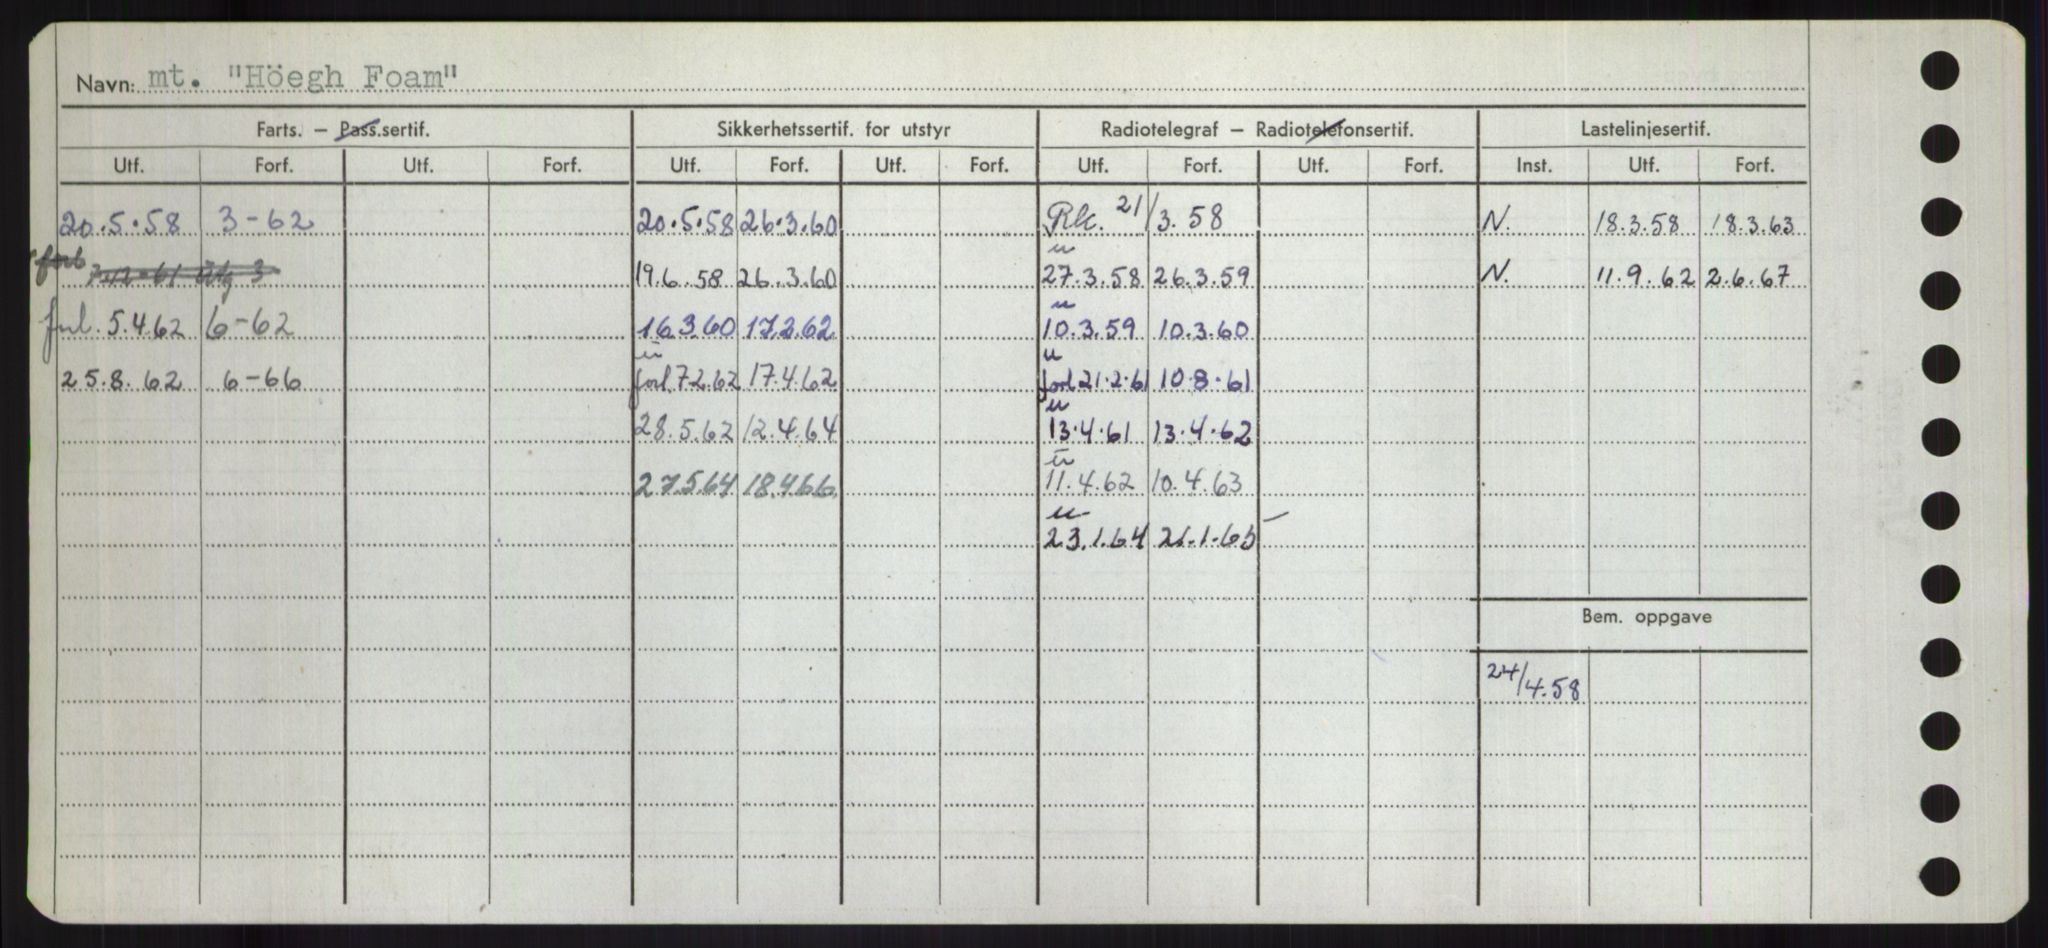 Navn: mt. "Höegh Foam"
Farts. – Pass.sertif. Sikkerhetssertif. for utstyr Radiotelegraf – Radiotelefonsertif. Lastelinjesertif.
Utf. Forf. Utf. Forf. Utf. Forf. Utf. Forf. Utf. Forf. Utf. Forf. Inst. Utf. Forf.
20.5.58 3-62 20.5.58 26.3.60 Rk. 21/3.58 N. 18.3.58 18.3.63
7.12.61 3 19.6.58 26.3.60 27.3.58 26.3.59 N. 11.9.62 2.6.67
5.4.62 6-62 16.3.60 17.2.62 10.3.59 10.3.60
25.8.62 6-66 forl 7.2.62 17.4.62 forl 21.2.61 10.8.61
28.5.62 12.4.64 13.4.61 13.4.62
27.5.64 18.4.66 11.4.62 10.4.63
23.1.64 21.1.65
Bem. oppgave
24/4.58